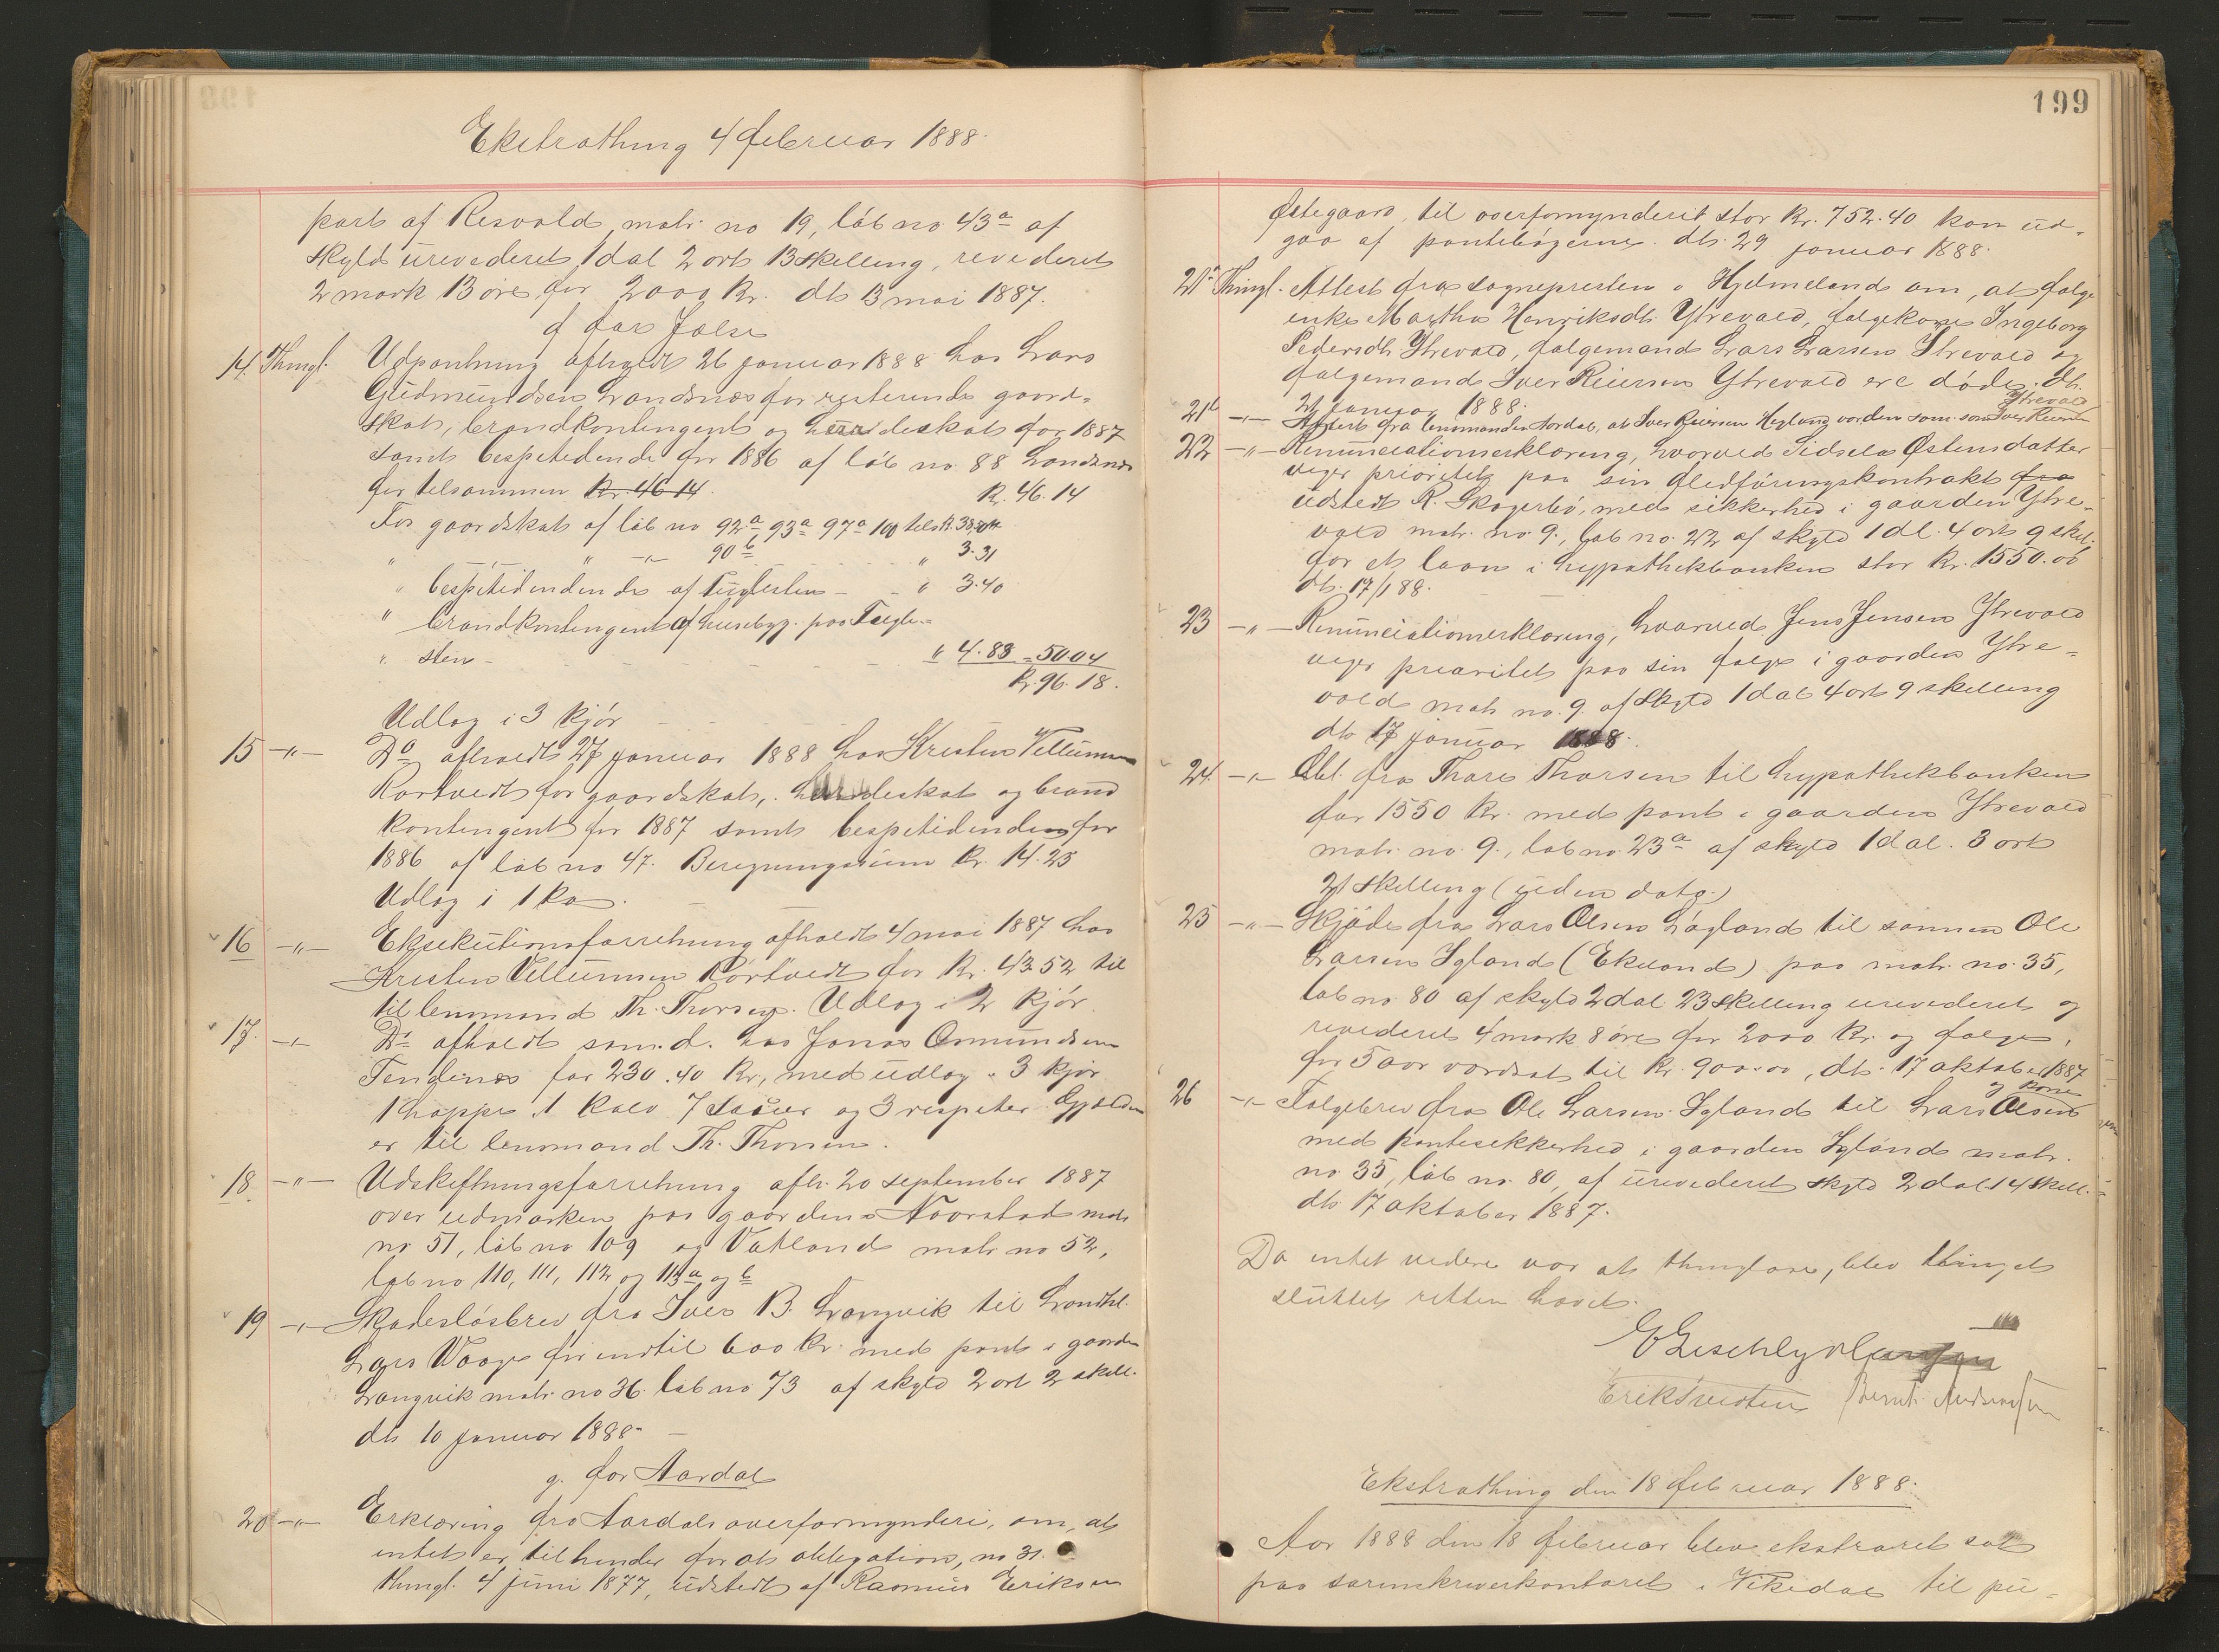 Ekstrathing 4 februar 1888.
part af Resvold, matr. no 19, löb no 43a af
skyld urevideret 1 dal 2 ort 13 skilling, revideret
2 mark 13 öre for 2000 kr. dt 13 mai 1887.
f for Jælse
14 Thingl. Udpantning afholdt 26 januar 1888 hos Lars
Gudmundsen Landsnæs for resterende gaard-
skat, brandkontingent og herredeskat for 1887
samt bespetidende for 1886 af löb no 88 Landsnæs
for tilsammen kr. 46.14. Kr. 46.14
For gaardskat af löb no 92a, 93a 97a 100 tils. kr. 38.50
" " " -"- 90b " 3.31
" bespetidendende af Tuglesten - " 3.40
" brandkontingent af husebyg. paa Tugle-
" sten - " 4.83 = 50.04
Kr. 96.18.
Udlæg i 3 kjör
15 -"- Do afholdt 27 januar 1888 hos Kristen Villumsen
Rørtvedt for gaardskat, herredeskat og brand
kontingent for 1887 samt bespetidenden for
1886 af löb no 47. Beregningssum kr. 14.25
Udlæg i 1 ko.
16 -"- Eksekutionsforretning afholdt 4 mai 1887 hos
Kristen Villumsen Rørtvedt for kr. 43.52 til
til lensmand Th. Thorsen. Udlæg i 2 kjör
17. -"- Do afholdt sam. d. hos Jonas Omundsen
Tendenes for 230.40 kr, med udlæg i 3 kjör
1 hoppe 1 kalv 7 sauer og 3 Gjælden
er til lensmand Th. Thorsen.
18 -"- Udskiftningsforretning afh. 20 september 1887
over udmarken paa gaardene Norstad matr
no 51, löb no 109 og Vatland matr no 52,
löb no 110, 111, 112 og 113a og b
19 -"- Skadeslösbrev fra Iver B. Langvik til Landhl.
Lars Waage for indtil 600 kr. med pant i gaarden
Langvik matr. no 36 löb no 73 af skyld 2 ort 2 skill.
dt 10 januar 1888.
g. for Aardal
20 -"- Erklæring fra Aardals overformynderi, om, at
intet er til hinder for at obligation, no 31.
thingl. 4 juni 1877, udstedt af Rasmus Eriksen
199
Østegaard, til overformynderit stor kr. 752.40 kan ud-
gaa af pantebögerne. dt. 29 januar 1888.
21a Thingl. Attest fra sognepresten i Hjelmeland om, at folge
enke Martha Henriksdt. Ytrevold, folgekone Ingeborg
Pedersdt. Ytrevold, folgemand Lars Larsen Ytrevold og
folgemand Iver Reiersen Ytrevold ere döde. dt.
21 januar 1888.
21b -"- Attest fra lensmanden Aardal, at Iver Reiersen Heyland var den samme som Iver Reiersen Ytrevold
22 -"- Renunciationserklæring, hvorved Sidsela Østensdatter
viger prioritet paa sin fledföringskontrakt fra
udstedt R. Skogerbö, med sikkerhed i gaarden Ytre-
vold matr. no. 9, löb no. 22 af skyld 1 dl. 4 ort 9 skil.
for et laan i hypothekbanken stor kr. 1550.00
dt. 17/1 88.
23 -"- Renunciationserklæring, hvorved Jens Jensen Ytrevold
viger prioritet paa sin folge i gaarden Ytre-
vold matr no. 9. af skyld 1 dal 4 ort 9 skilling
dt 17 januar 1888.
24. -"- Obl. fra Thore Thorsen til hypothekbanken
for 1550 kr. med pant i gaarden Ytrevold
matr. no. 9., löb no. 23a af skyld 1 dal. 3 ort
21 skilling (uden dato.)
25 -"- Skjöde fra Lars Olsen Lögland til sönnen Ole
Larsen Igland (Ekeland) paa matr. no. 35,
löb no. 80 af skyld 2 dal. 23 skilling urevideret og
revideret 4 mark 8 öre for 2000 kr. og folge,
for 5 aar værdsat til kr. 900.00, dt. 17 oktober 1887
26 -"- Folgebrev fra Ole Larsen Igland til Lars Olsen og kone
med pantesikkerhed i gaarden Igland matr.
no. 35, löb no. 80, af urevideret skyld 2 dal. 14 skill.
dt. 17 oktober 1887.
Da intet videre var at thinglæse, blev thinget
sluttet retten hævet.
Erik Svesten Bernt Andersen
Ekstrathing den 18 februar 1888.
Aar 1888 den 18 februar blev ekstraret sat
paa sorenskriverkontoret i Vikedal til pu-